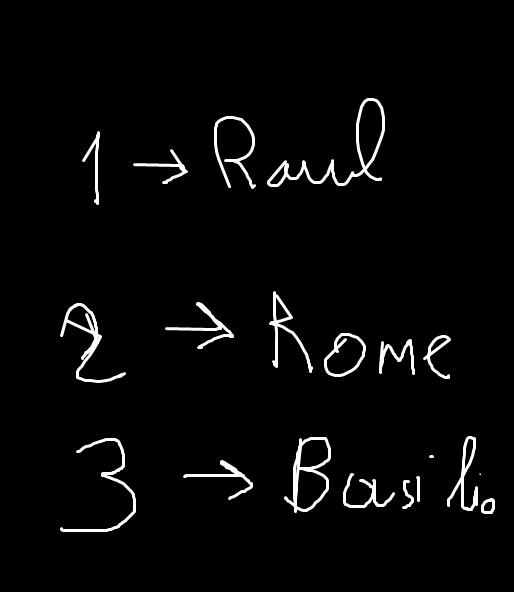 1 → Raul
2 → Rome
3 → Basilio